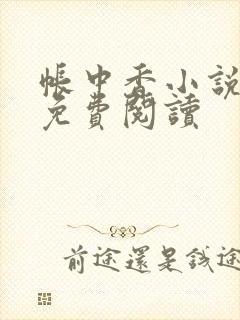 帳中香小説
免費閱讀
前途還是錢途